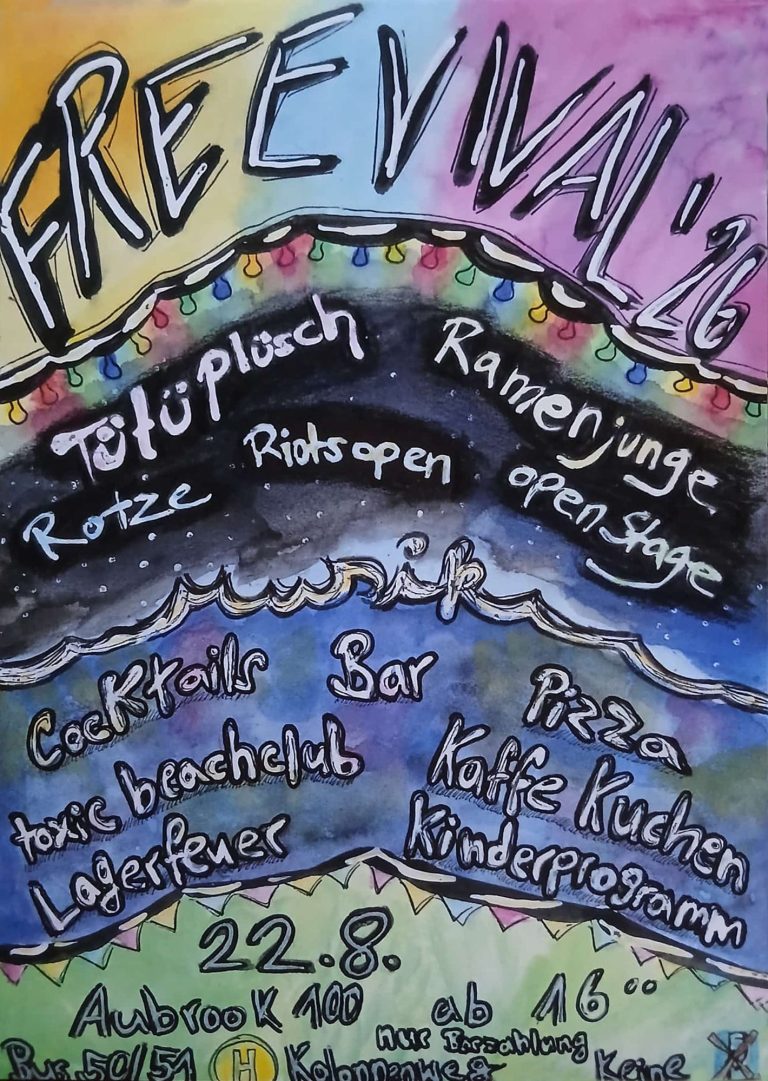 FREEVIVAL '26
Tütüplüsch
Ramenjunge
Rotze
Riotsopen
open Stage
musik
Cocktails
Bar
Pizza
toxic beachclub
Kaffe Kuchen
Lagerfeuer
Kinderprogramm
22.8.
Aubrook 100 ab 16°°
nur Barzahlung
Bus 50/51 H Kolonnenweg Keine P